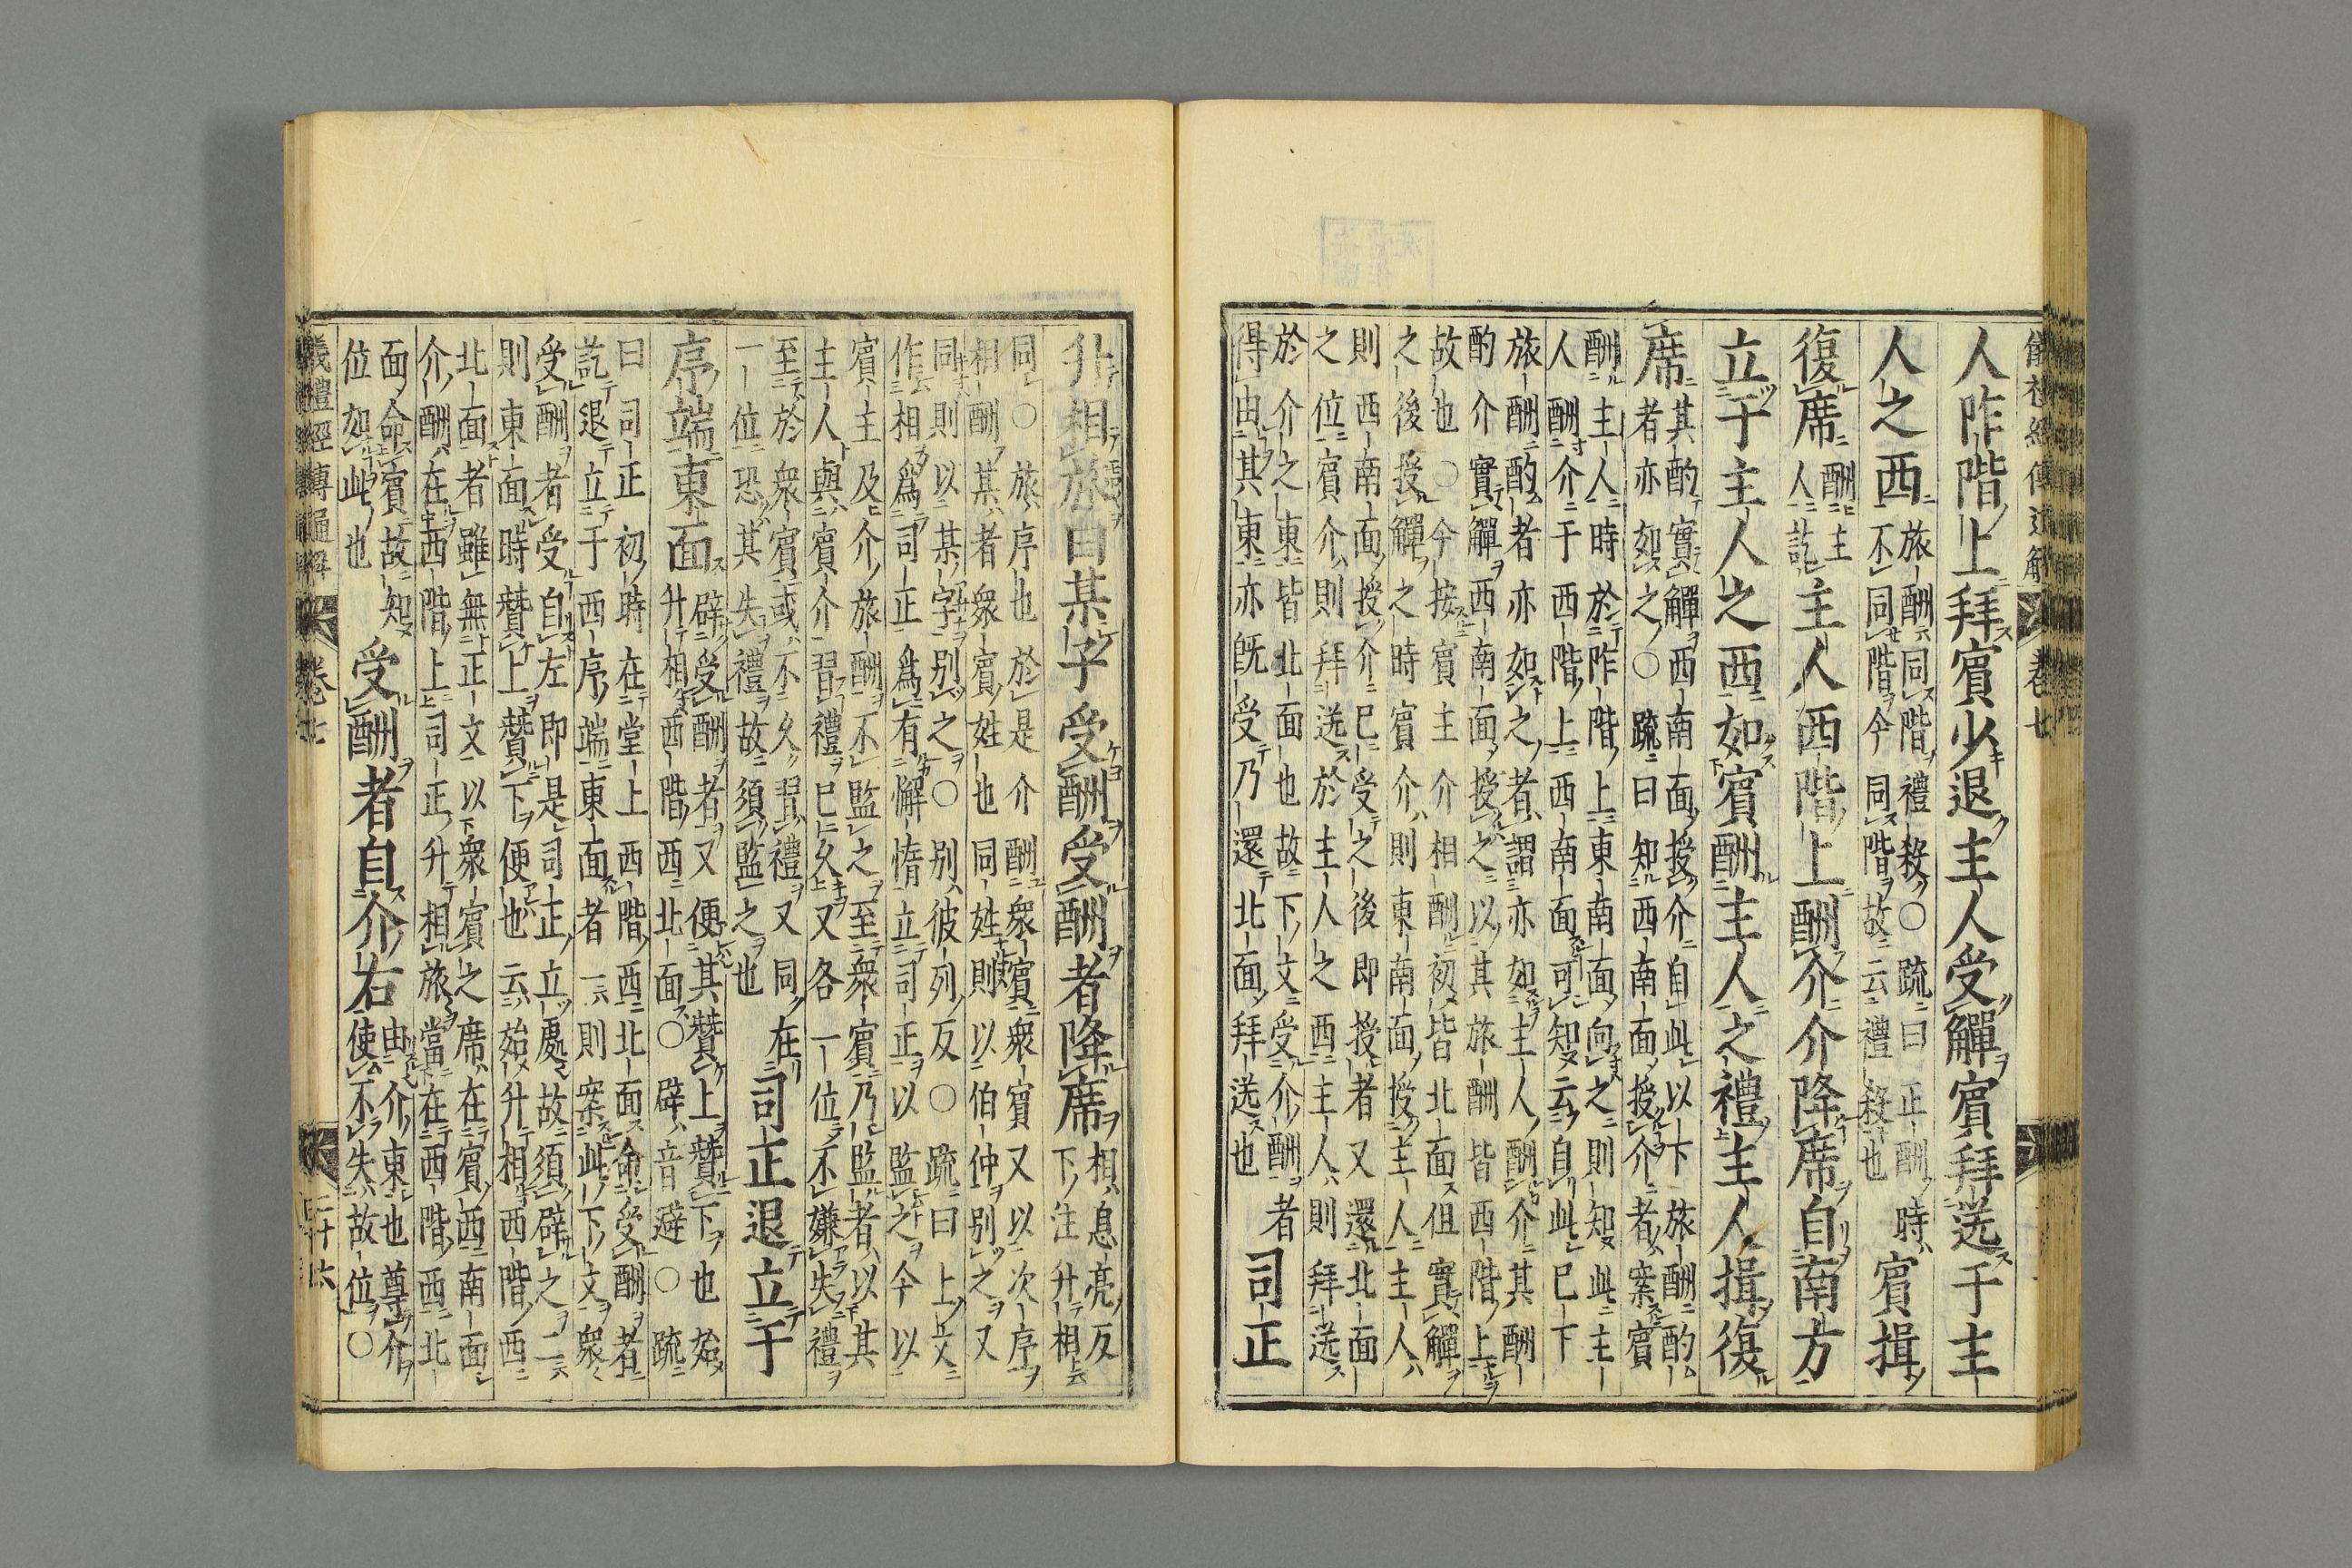 儀禮經傳通解 卷七
人阼階上拜賓少退主人受觶賓拜送于主
人之西 旅酬同階禮殺〇疏曰正酬時
不同階今同階故云禮殺也 賓揖
復席 酬主
人訖 主人西階上酬介介降席自南方
立于主人之西如賓酬主人之禮主人揖復
席 其酌實觶西南面授介自此以下旅酬酌
者亦如之〇疏曰知西南面授介者案賓
酬主人時於阼階上東南面向之則知此主
人酬介于西階上西南面可知云自此已下
旅酬酌者亦如之者謂亦如主人酬介其酬
酌介實觶西南面授之以其旅酬皆西階上
故也〇今按賓主介相酬初皆北面但實觶
之後授觶之時賓介則東南面授主人主人
則西南面授介已受之後即授者又還北面
之位賓介則拜送於主人之西主人則拜送
於介之東皆北面也故下文受介酬者
得由其東亦旣受乃還北面拜送也 司正
升相旅曰某子受酬受酬者降席 相息亮反
下注升相
同〇旅序也於是介酬衆賓衆賓又以次序
相酬某者衆賓姓也同姓則以伯仲別之又
同則以某字別之〇別彼列反〇疏曰上文
作相爲司正爲有懈惰立司正以監之今以
賓主及介旅酬不監之至衆賓乃監者以其
主人與賓介習禮已久又各一位不嫌失禮
至於衆賓或不久習禮又同在
一位恐其失禮故須監之也 司正退立于
序端東面 辟受酬者又便其贊上贊下也始
升相西階西北面〇辟音避〇疏
曰司正初時在堂上西階西北面命受酬者
訖退立于西序端東面者一則案此下文衆
受酬者受自左即是司正立處故須辟之二
則東面時贊上贊下便也云始升相西階西
北面者雖無正文以衆賓之席在賓西南面
介酬在西階上司正升相旅當在西階西北
面命賓故知
位如此也 受酬者自介右 由介東也尊介
使不失故位〇
儀禮經傳通解 卷七 二十六